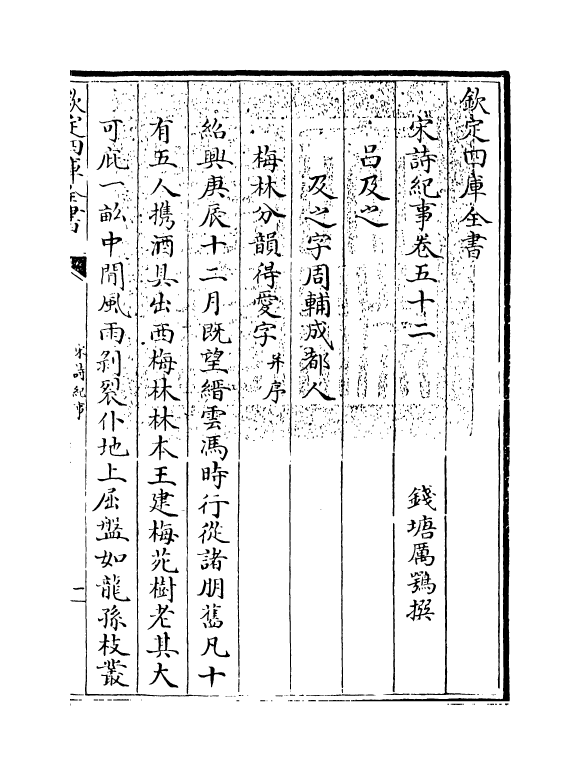 欽定四庫全書
宋詩紀事卷五十二
錢塘厲鶚撰
呂及之
及之字周輔成都人
梅林分韻得愛字并序
紹興庚辰十二月既望縉雲馮時行從諸朋舊凡十
有五人携酒具出西梅林林本王建梅苑樹老其大
可庇一畝中間風雨剥裂仆地上屈盤如龍孫枝叢
欽定四庫全書
宋詩紀事
一